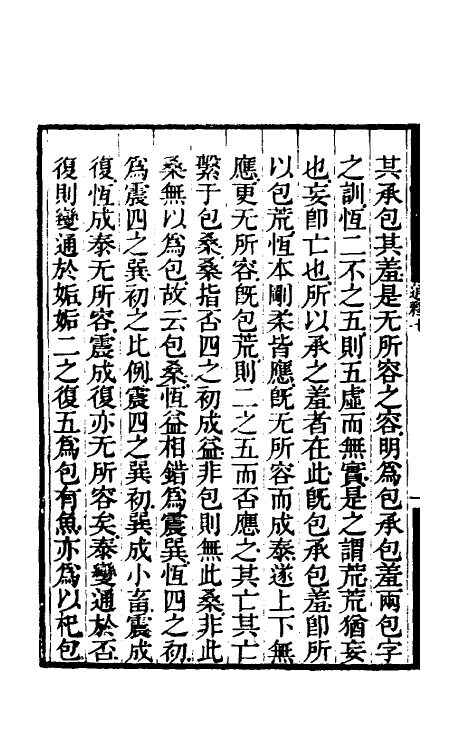 其承包其羞是无所容之容明爲包承包羞兩包字
之訓恆二不之五則五虛而無實是之謂荒荒猶妄
也妄卽亡也所以承之羞者在此旣包承包羞卽所
以包荒恆本剛柔皆應旣无所容而成泰遂上下無
應更无所容旣包荒則二之五而否應之其亡其亡
繫于包桑桑指否四之初成益非包則無此桑非此
桑無以爲包故云包桑恆益相錯爲震巽恆四之初
爲震四之巽初之比例震四之巽初巽成小畜震成
復恆成泰无所容震成復亦无所容矣泰變通於否
復則變通於姤姤二之復五爲包有魚亦爲以杞包
通釋七
一